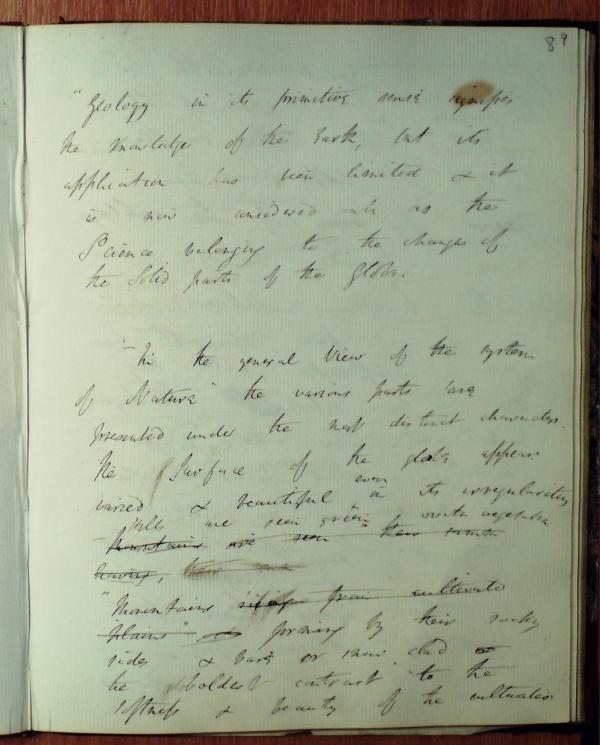 89
"Geology in its primitive sense signifies
the knowledge of the Earth, but its
application has been limited & it
is now considered only as the
Science belonging to the changes of
the Solid parts of the Globe.
"In the general View of the system
of Nature" the various parts are
presented under the most distinct characters.
The Surface of the globe appears
varied & beautiful even in its irregularities
– Hills are seen green with vegetable
Mountains are seen their
having,
"Mountains rising from cultivated
plains" forming by their rocky
sides & bare or snow clad
the boldest contrast to the
softness & beauty of the cultivated